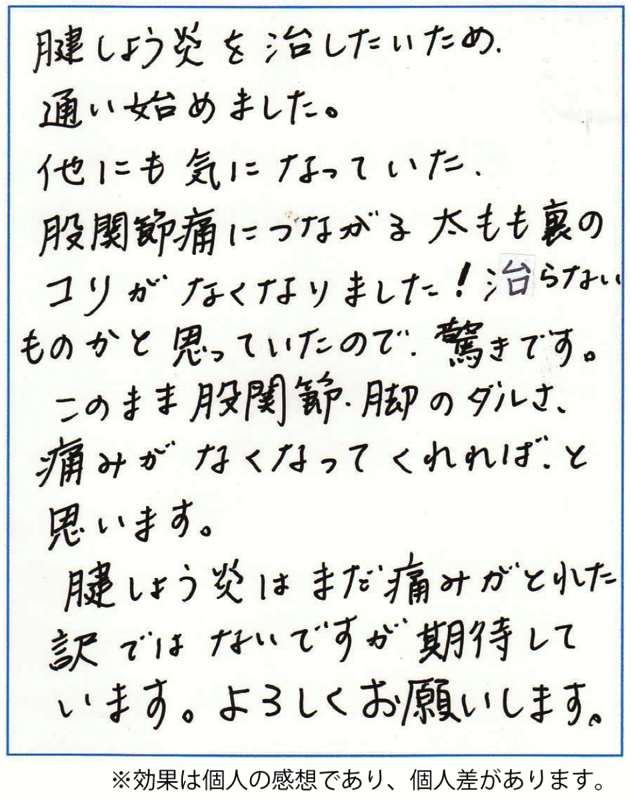 腱しょう炎を治したいため、
通い始めました。
他にも気になっていた、
股関節痛につながる太もも裏の
コリがなくなりました!治らない
ものかと思っていたので、驚きです。
このまま股関節、脚のダルさ、
痛みがなくなってくれれば、と
思います。
腱しょう炎はまだ痛みがとれた
訳ではないですが期待して
います。よろしくお願いします。
※効果は個人の感想であり、個人差があります。